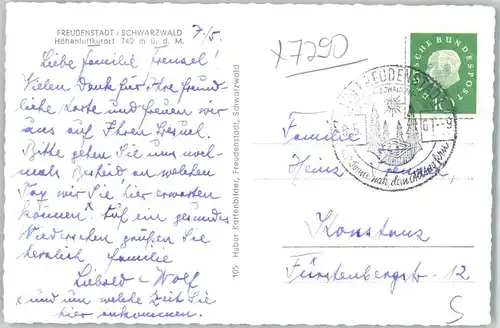 FREUDENSTADT / SCHWARZWALD
Höhenluftkurort 740 m ü. d. M.
7./5.
Liebe Familie Frensel!
Vielen Dank für Ihre freund-
liche Karte und freuen wir
uns auf Ihren Besuch.
Bitte geben Sie uns noch-
mals Bescheid an welchen
Tag wir Sie hier erwarten
können x Auf ein gesundes
Wiedersehen grüßen Sie
herzlich Familie
Liebold-Wolf
x und um welche Zeit Sie
hier ankommen.
105 Huber Kartenbilder, Freudenstadt, Schwarzwald
x7290
DEUTSCHE BUNDESPOST
FREUDENSTADT
Familie
Heinz
Konstanz
Fürstenbergstr. 12
S